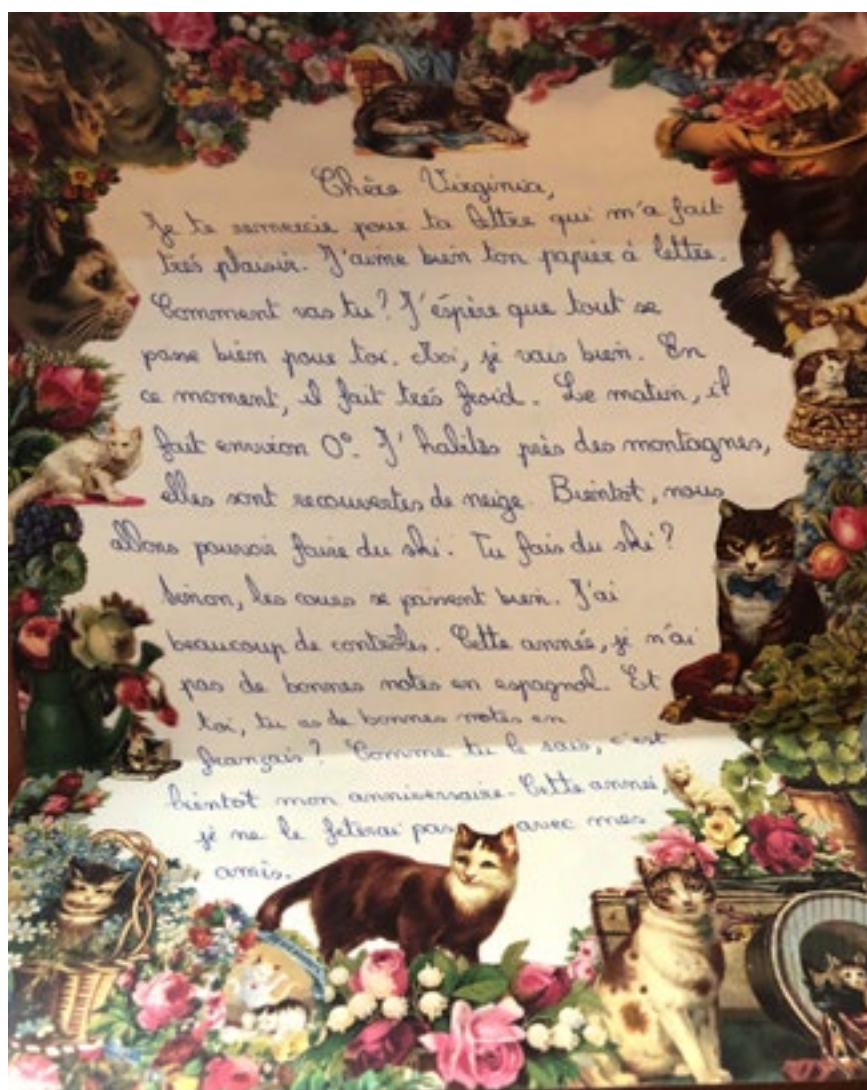 Chère Virginia,
Je te remercie pour ta lettre qui m'a fait
trés plaisir. J'aime bien ton papier à lettre.
Comment vas tu? J'éspère que tout se
passe bien pour toi. Moi, je vais bien. En
ce moment, il fait trés froid. Le matin, il
fait environ 0°. J'habites près des montagnes,
elles sont recouvertes de neige. Bientot, nous
allons pouvoir faire du ski. Tu fais du ski?
Sinon, les cours se passent bien. J'ai
beaucoup de contrôles. Cette année, je n'ai
pas de bonnes notes en espagnol. Et
toi, tu as de bonnes notes en
français? Comme tu le sais, c'est
bientot mon anniversaire. Cette année,
je ne le feterai pas avec mes
amis.